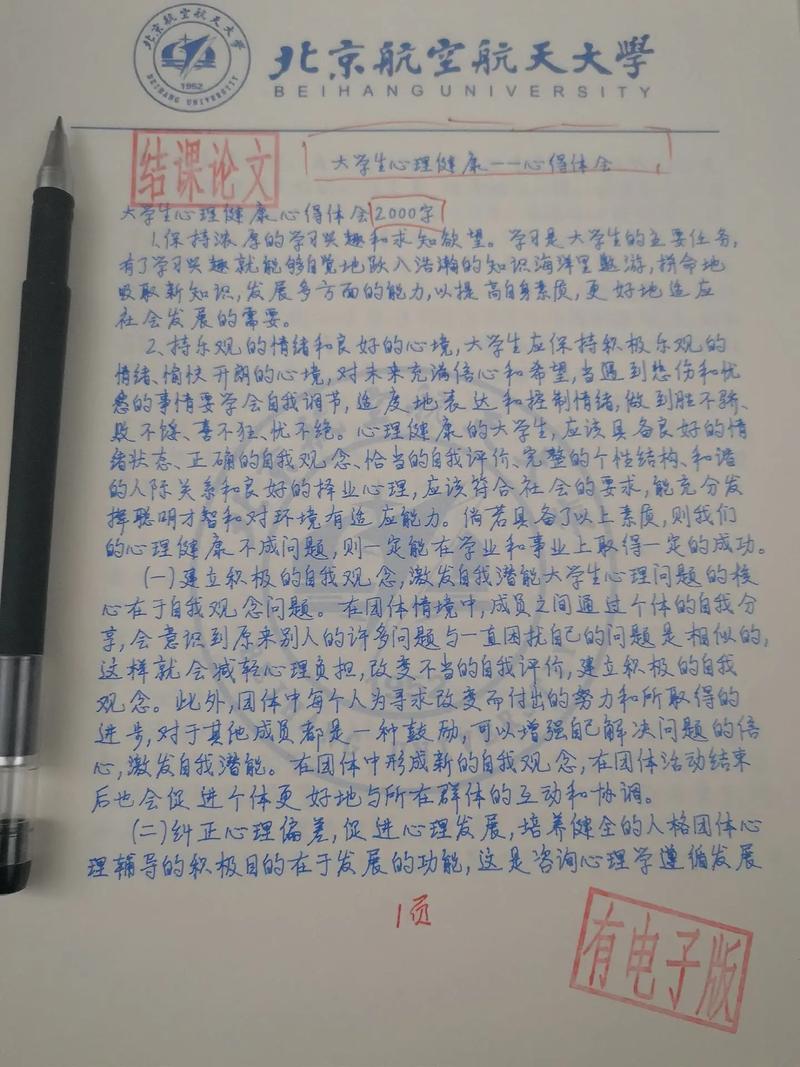 北京航空航天大學
BEIHANG UNIVERSITY
1952
结课论文
大学生心理健康--心得体会
大学生心理健康心得体会2000字
1.保持浓厚的学习兴趣和求知欲望。学习是大学生的主要任务,
有了学习兴趣就能够自觉地跃入浩瀚的知识海洋里遨游,拼命地
吸取新知识,发展多方面的能力,以提高自身素质,更好地适应
社会发展的需要。
2、持乐观的情绪和良好的心境,大学生应保持积极乐观的
情绪、愉快开朗的心境,对未来充满信心和希望,当遇到悲伤和忧
愁的事情要学会自我调节,适度地表达和控制情绪,做到胜不骄、
败不馁、喜不狂、忧不绝。心理健康的大学生,应该具备良好的情
绪状态、正确的自我观念、恰当的自我评价、完整的个性结构、和谐
的人际关系和良好的择业心理,应该符合社会的要求,能充分发
挥聪明才智和对环境有适应能力。倘若具备了以上素质,则我们
的心理健康不成问题,则一定能在学业和事业上取得一定的成功。
(一)建立积极的自我观念,激发自我潜能大学生心理问题的核
心在于自我观念问题。在团体情境中,成员之间通过个体的自我分
享,会意识到原来别人的许多问题与一直困扰自己的问题是相似的,
这样就会减轻心理负担,改变不当的自我评价,建立积极的自我
观念。此外,团体中每个人为寻求改变而付出的努力和所取得的
进步,对于其他成员都是一种鼓励,可以增强自己解决问题的信
心,激发自我潜能。在团体中形成新的自我观念,在团体活动结束
后也会促进个体更好地与所在群体的互动和协调。
(二)纠正心理偏差,促进心理发展,培养健全的人格团体心
理辅导的积极目的在于发展的功能,这是咨询心理学遵循发展
1页
有电子版